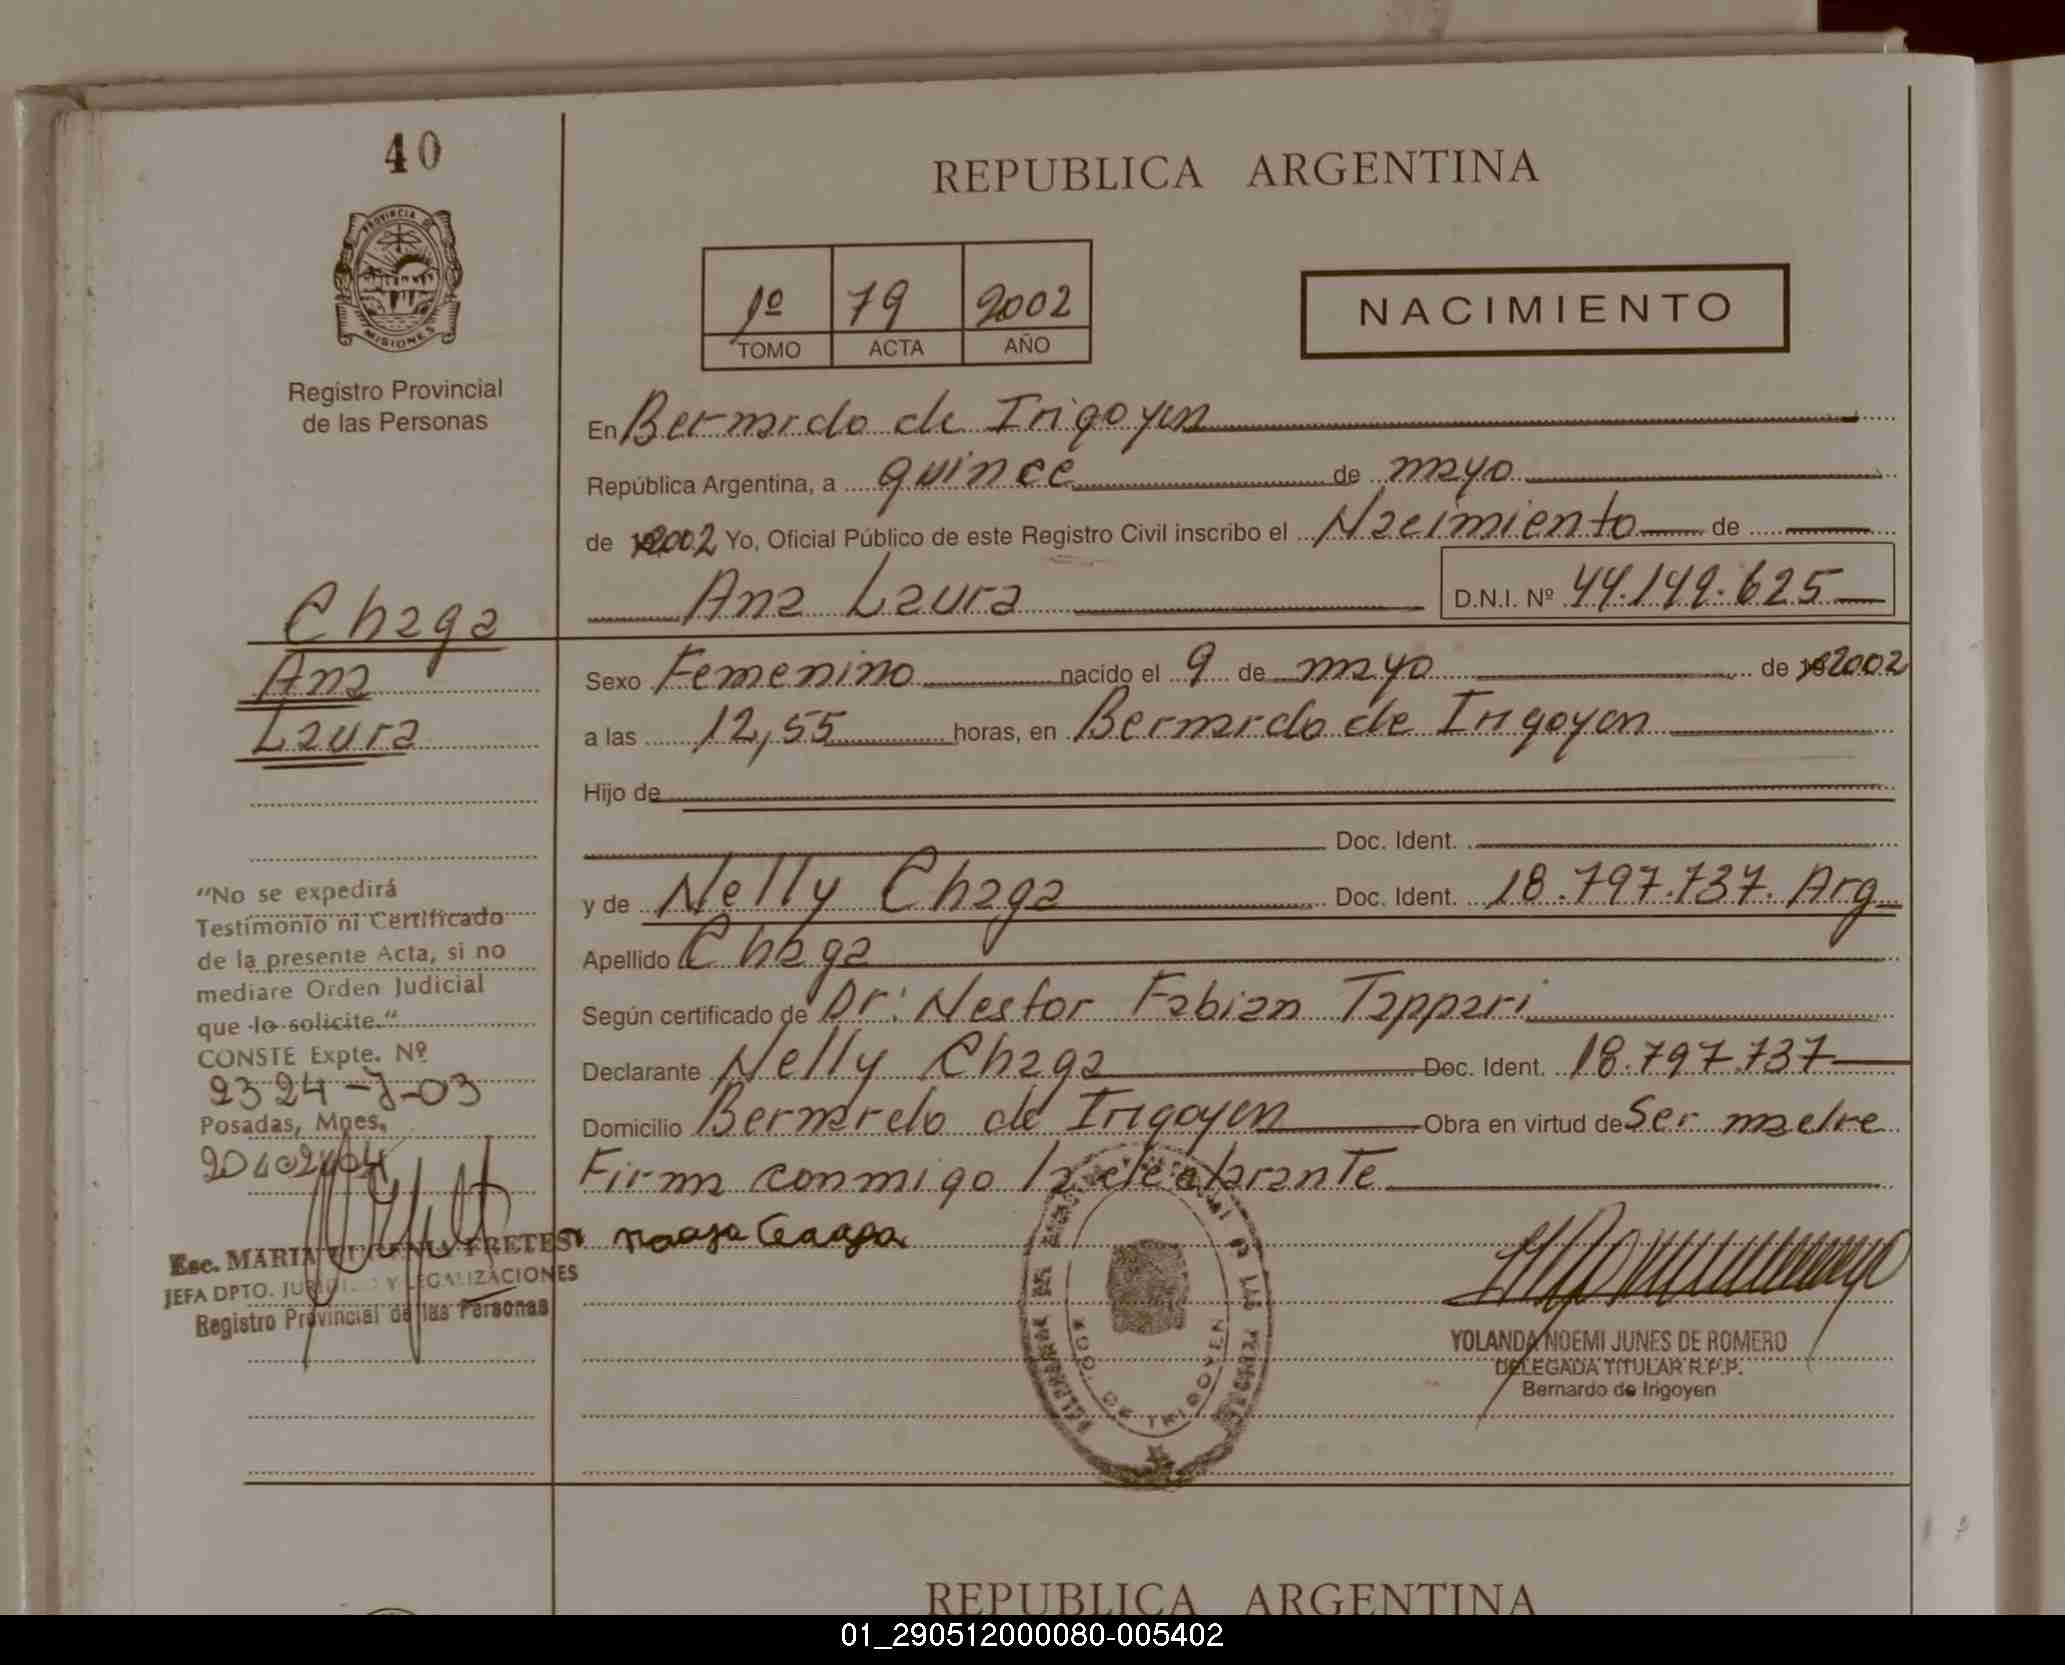 40
REPUBLICA ARGENTINA
PROVINCIA DE
MISIONES
Registro Provincial
de las Personas
1º 79 2002
TOMO ACTA AÑO
NACIMIENTO
En Bernardo de Irigoyen
República Argentina, a quince de mayo
de 2002 Yo, Oficial Público de este Registro Civil inscribo el Nacimiento de
Ana Laura D.N.I. Nº 44.149.625
Chaga
Ana
Laura
Sexo Femenino nacido el 9 de mayo de 2002
a las 12,55 horas, en Bernardo de Irigoyen
Hijo de
Doc. Ident.
y de Nelly Chaga Doc. Ident. 18.797.737. Arg
Apellido Chaga
Según certificado de Dr: Nestor Fabian Tappari
Declarante Nelly Chaga Doc. Ident. 18.797.737
Domicilio Bernardo de Irigoyen Obra en virtud de Ser madre
Firma conmigo la declarante
"No se expedirá
Testimonio ni Certificado
de la presente Acta, si no
mediare Orden Judicial
que lo solicite."
CONSTE Expte. Nº
2324-J-03
Posadas, Mnes,
20/02/04
Esc. MARIA EUGENIA FRETES
JEFA DPTO. JURIDICO Y LEGALIZACIONES
Registro Provincial de las Personas
BDO. DE IRIGOYEN
YOLANDA NOEMI JUNES DE ROMERO
DELEGADA TITULAR R.P.P.
Bernardo de Irigoyen
REPUBLICA ARGENTINA
01_290512000080-005402